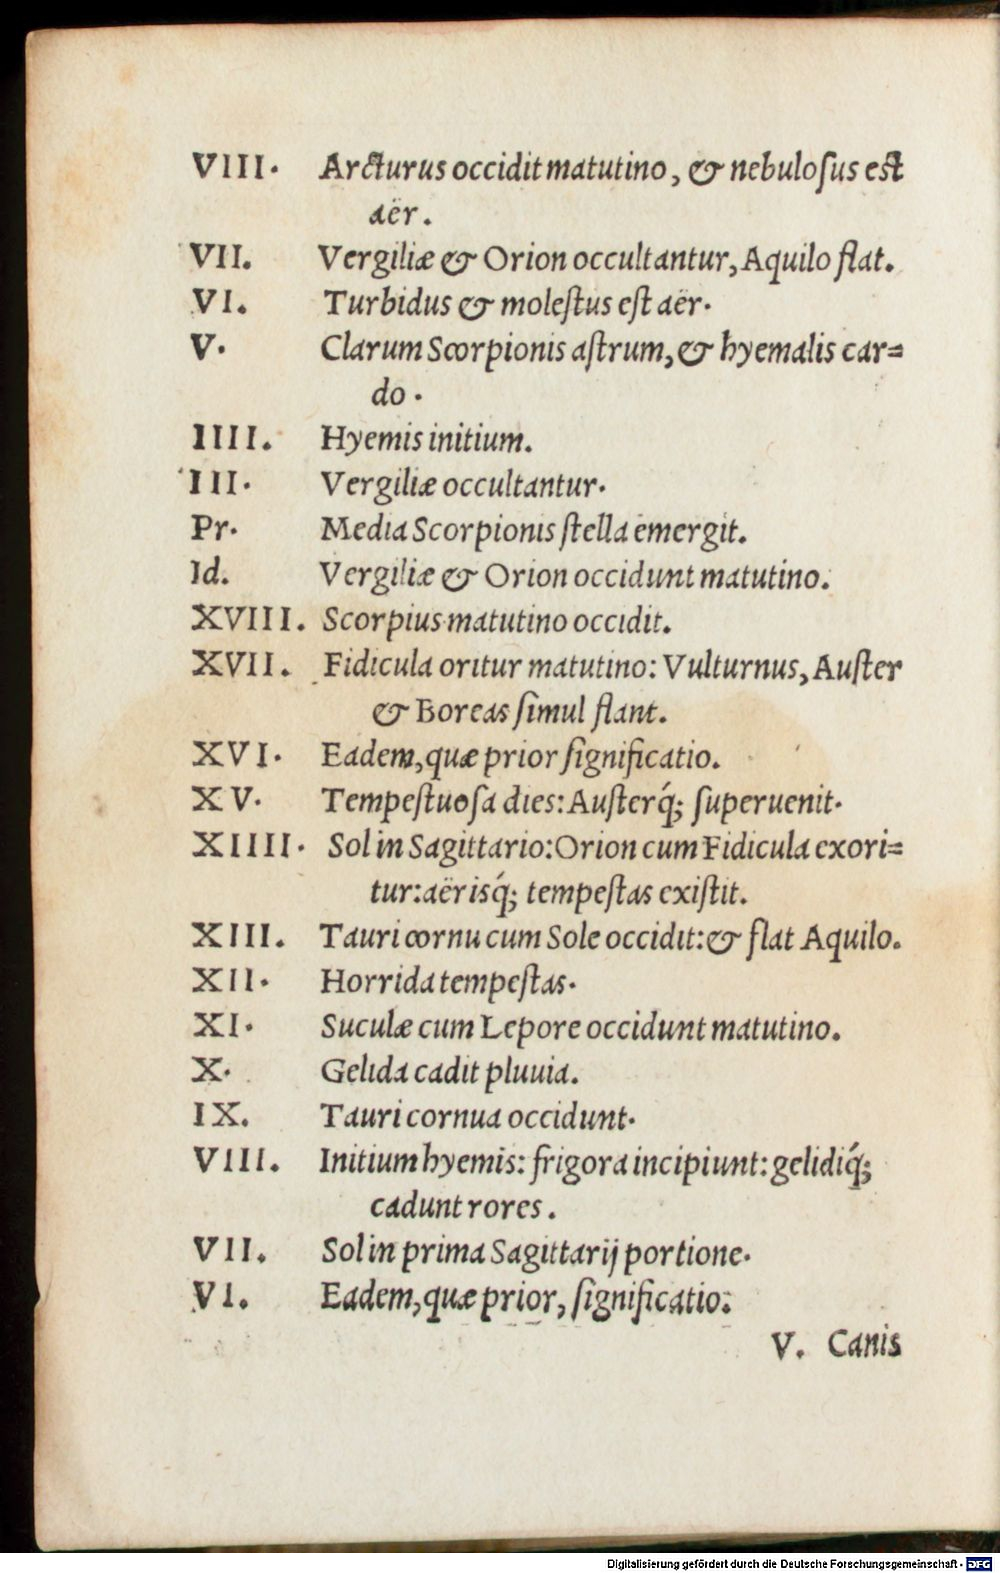 VIII. Arcturus occidit matutino, & nebuloſus est
aër.
VII. Vergiliæ & Orion occultantur, Aquilo flat.
VI. Turbidus & moleſtus eſt aër.
V. Clarum Scorpionis aſtrum, & hyemalis car=
do.
IIII. Hyemis initium.
III. Vergiliæ occultantur.
Pr. Media Scorpionis ſtella emergit.
Id. Vergiliæ & Orion occidunt matutino.
XVIII. Scorpius matutino occidit.
XVII. Fidicula oritur matutino: Vulturnus, Auſter
& Boreas ſimul flant.
XVI. Eadem, quæ prior ſignificatio.
XV. Tempeſtuoſa dies: Auſterq́; ſuperuenit.
XIIII. Sol in Sagittario: Orion cum Fidicula exori=
tur: aërisq́; tempeſtas exiſtit.
XIII. Tauri cornu cum Sole occidit: & flat Aquilo.
XII. Horrida tempeſtas.
XI. Suculæ cum Lepore occidunt matutino.
X. Gelida cadit pluuia.
IX. Tauri cornua occidunt.
VIII. Initium hyemis: frigora incipiunt: gelidiq́;
cadunt rores.
VII. Sol in prima Sagittarij portione.
VI. Eadem, quæ prior, ſignificatio.
V. Canis
Digitalisierung gefördert durch die Deutsche Forschungsgemeinschaft - DFG